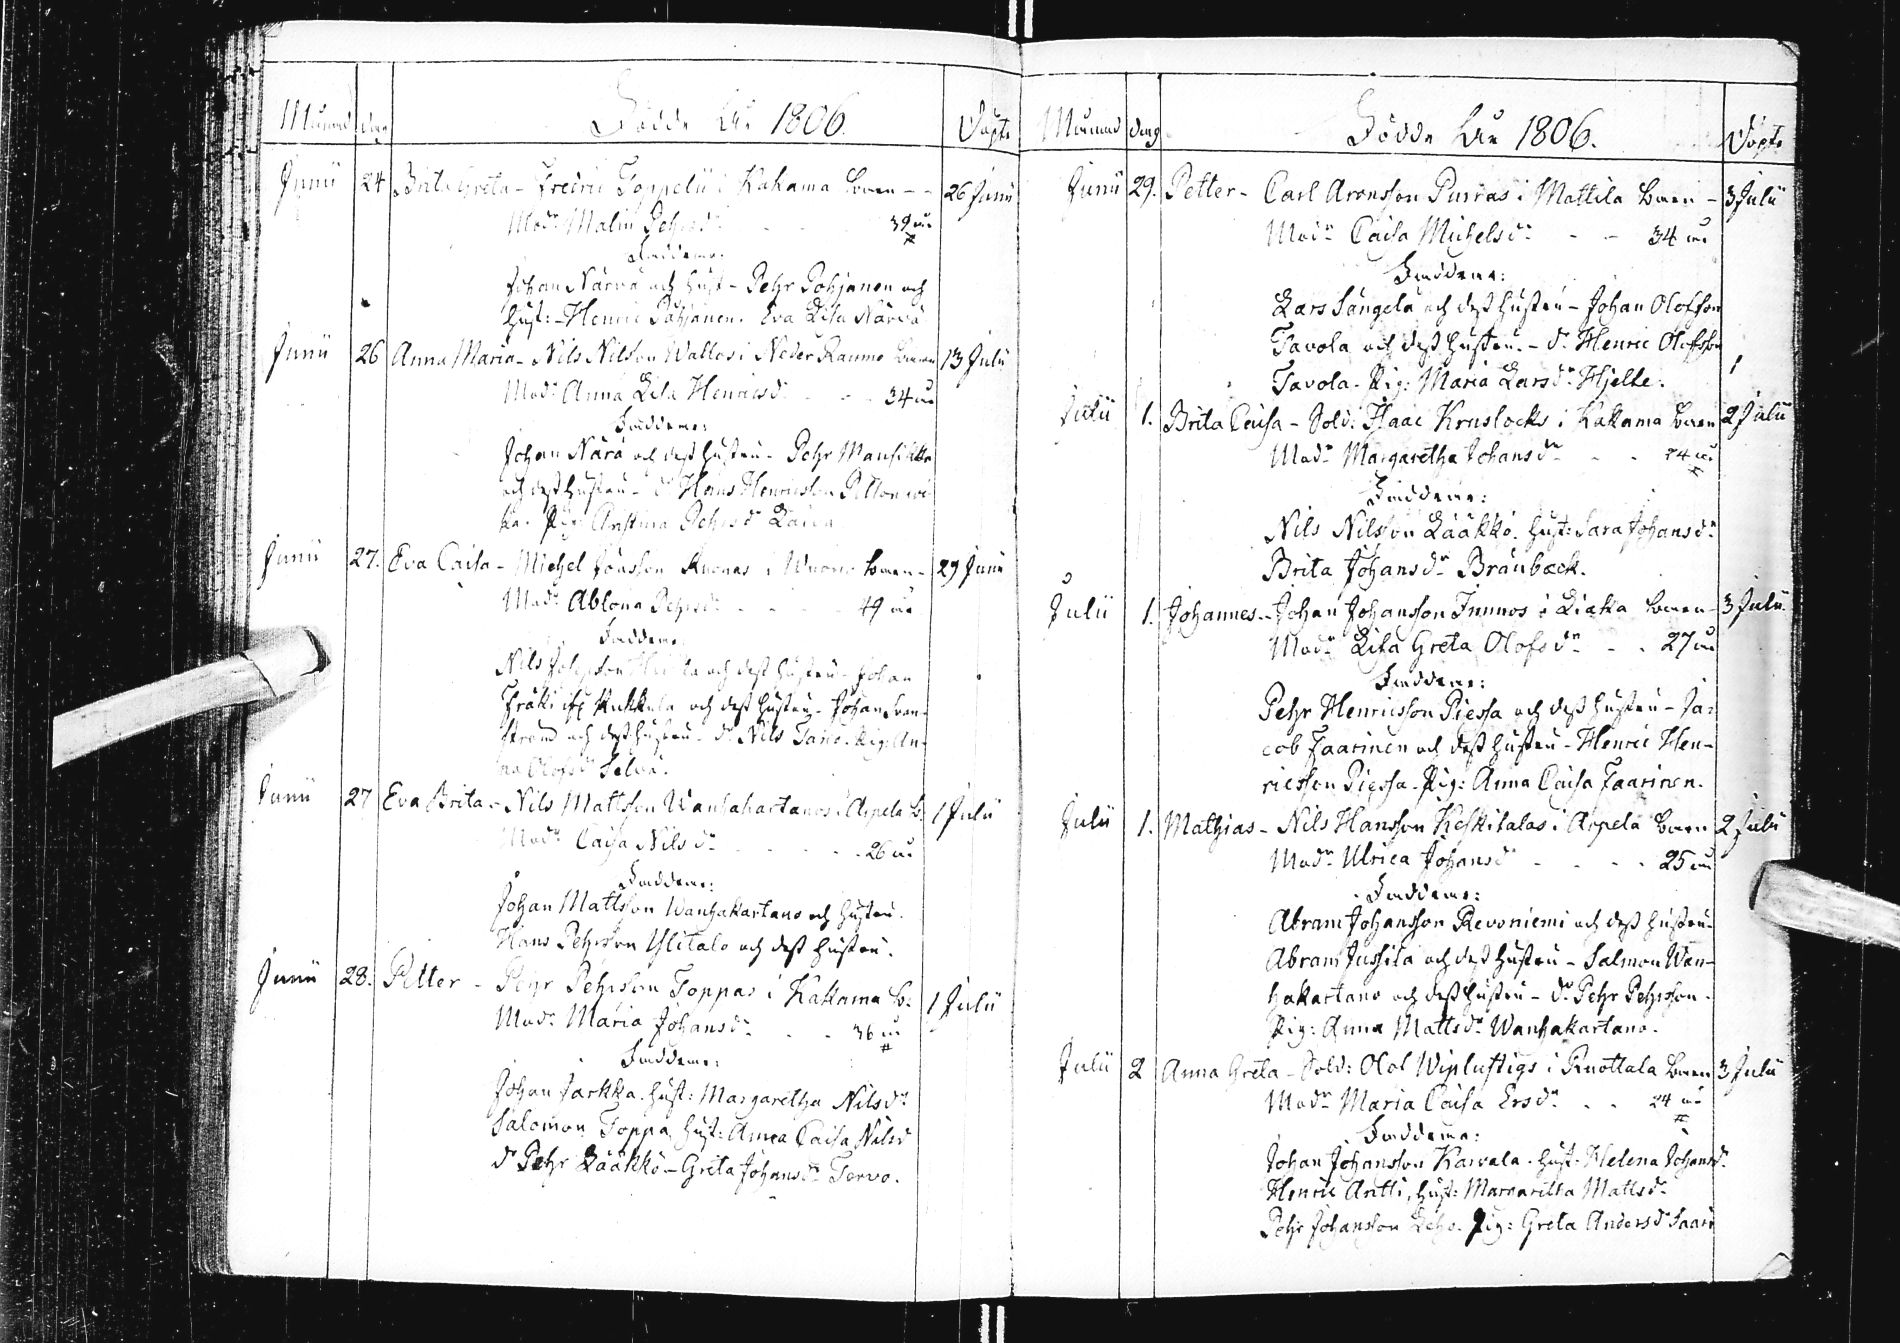 Månad dag Födde År 1806. Döpte
Junii 24 Brita Greta - Fredric Toppelii i Kakama barn - - 26 Junii
Modr Malin Pehrsdr - - - 39 år
Faddrar:
Johan Närvä och Hust - Pehr Pohjanen och
Hust: - Henric Pohjanen. Eva Lisa Närvä
Junii 26 Anna Maria - Nils Nilsson Wallos i Neder Raumo barn 13 Julii
Modr Anna Lisa Henricsdr - - - 34 år
Faddrar:
Johan Närä och dess hustru - Pehr Mansikka
och dess hustru - dr Hans Henricsson
Pig: Christina Pehrsdr
Junii 27. Eva Caisa - Michel Jönsson i Wuono barn - 29 Junii
Modr Ablona Pehrsdr - - - 49 år
Faddrar:
Nils Johansson och dess hustru - Johan
Kukkula och dess hustru - Johan
ström och dess hustru - dr Nils Taino. Pig: An-
na Olofsdr
Junii 27 Eva Brita - Nils Mattsson Wanhakartanos i Arpela b. 1 Julii
Modr Caisa Nilsdr - - - 26 år
Faddrar:
Johan Mattsson Wanhakartano och hustru.
Hans Pehrsson Ylitalo och dess hustru.
Junii 28. Petter - Pehr Pehrsson Toppas i Kakama b: 1 Julii
Modr Maria Johansdr - - 36 år
Faddrar:
Johan Jarkka. Hust: Margaretha Nilsdr
Salomon Toppa, hust: Anna Caisa Nilsd
dr Pehr Lääkkö - Greta Johansdr Tervo.
Månad dag Födde År 1806. Döpte
Junii 29. Petter - Carl Aronsson Purras i Mattila barn - 3 Julii
Modr Caisa Michelsdr - - 34 år
Faddrar:
Lars Sangela och dess hustru - Johan Olofsson
Tavola och dess hustru. - dr Henric Olofsson
Tavola - Pig: Maria Larsdr Hjelte.
Julii 1. Brita Caisa - Sold: Isaac Kruslocks i Kakama barn 2 Julii
Modr Margaretha Johansdr - - 24 år
Faddrar:
Nils Nilsson Lääkkö. Hust: Sara Johansdr
Brita Johansdr Braubäck.
Julii 1. Johannes - Johan Johansson Innuos i Liaka barn - 3 Julii
Modr Lisa Greta Olofsdr - - 27 år
Faddrar:
Pehr Henricsson Piessa och dess hustru - Ja-
cob Taarinen och dess hustru - Henric Hen-
ricsson Piessa. Pig: Anna Caisa Taarinen.
Julii 1. Mathias - Nils Hansson Keskitalos i Arpela barn 2 Julii
Modr Ulrica Johansdr - - - 25 år
Faddrar:
Abram Johansson Revoniemi och dess hustru -
Abram Jussila och dess hustru - Salmon Wan-
hakartano och dess hustru - dr Pehr Pehrsson -
Pig: Anna Mattsdr Wanhakartano.
Julii 2 Anna Greta - Sold: Olof Wiplustigs i Ruottala barn 3 Julii
Modr Maria Caisa Ersdr - - 24 år
Faddrar:
Johan Johansson Karvala. Hust: Helena Johansdr
Henric Antti, Hust: Margaritha Mattsdr
Pehr Johansson Leho. Pig: Greta Andersdr Saari